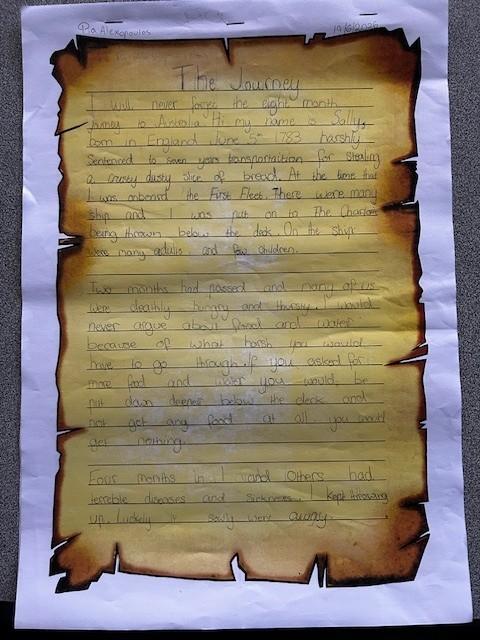 P.a Alexopoulos 19/6/2020
The Journey
I will never forget the eight month
journey to Australia. Hi my name is Sally,
born in England June 5th 1783 harshly
sentenced to seven years transportation for stealing
a crusty dusty slice of bread. At the time that
I was onboard the First Fleet. There were many
ship and I was put on to The Charlote
being thrown below the deck. On the ship
were many adults and few children.
Two months had passed and many of us
were deathly hungry and thirsty. I would
never argue about food and water
because of what harsh you would
have to go through. If you asked for
more food and water you would be
put down deeper below the deck and
not get any food at all you would
get nothing.
Four months in I and Others had
terreble diseases and sickness. I kept throwing
up. Luckely it sowly went away.